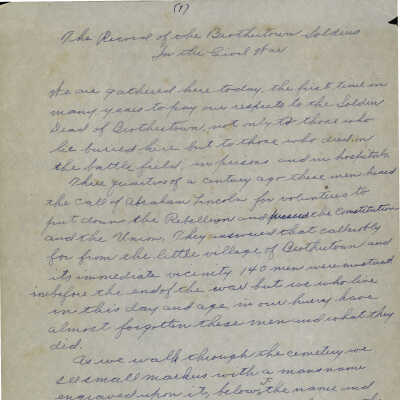 (1)
The Record of the Brothertown Soldiers
In the Civil War
We are gathered here today, the first time in
many years to pay our respects to the Soldier
Dead of Brothertown, not only to those who
lie buried here but to those who died on
the battle field, in prisons and in hospitals.
Three quarters of a century ago these men heard
the call of Abraham Lincoln for volunteers to
put down the Rebellion and the Constitution
and the Union. They that all
for from the little village of Brothertown and
its immediate vicenity 140 men were mustered
in before the end of the war but we who live
in this day and age, in our hurry have
almost forgotten these men and what they
did.
As we walk through the cemetery we
see small markers with a mans name
engraved upon it, below the name and